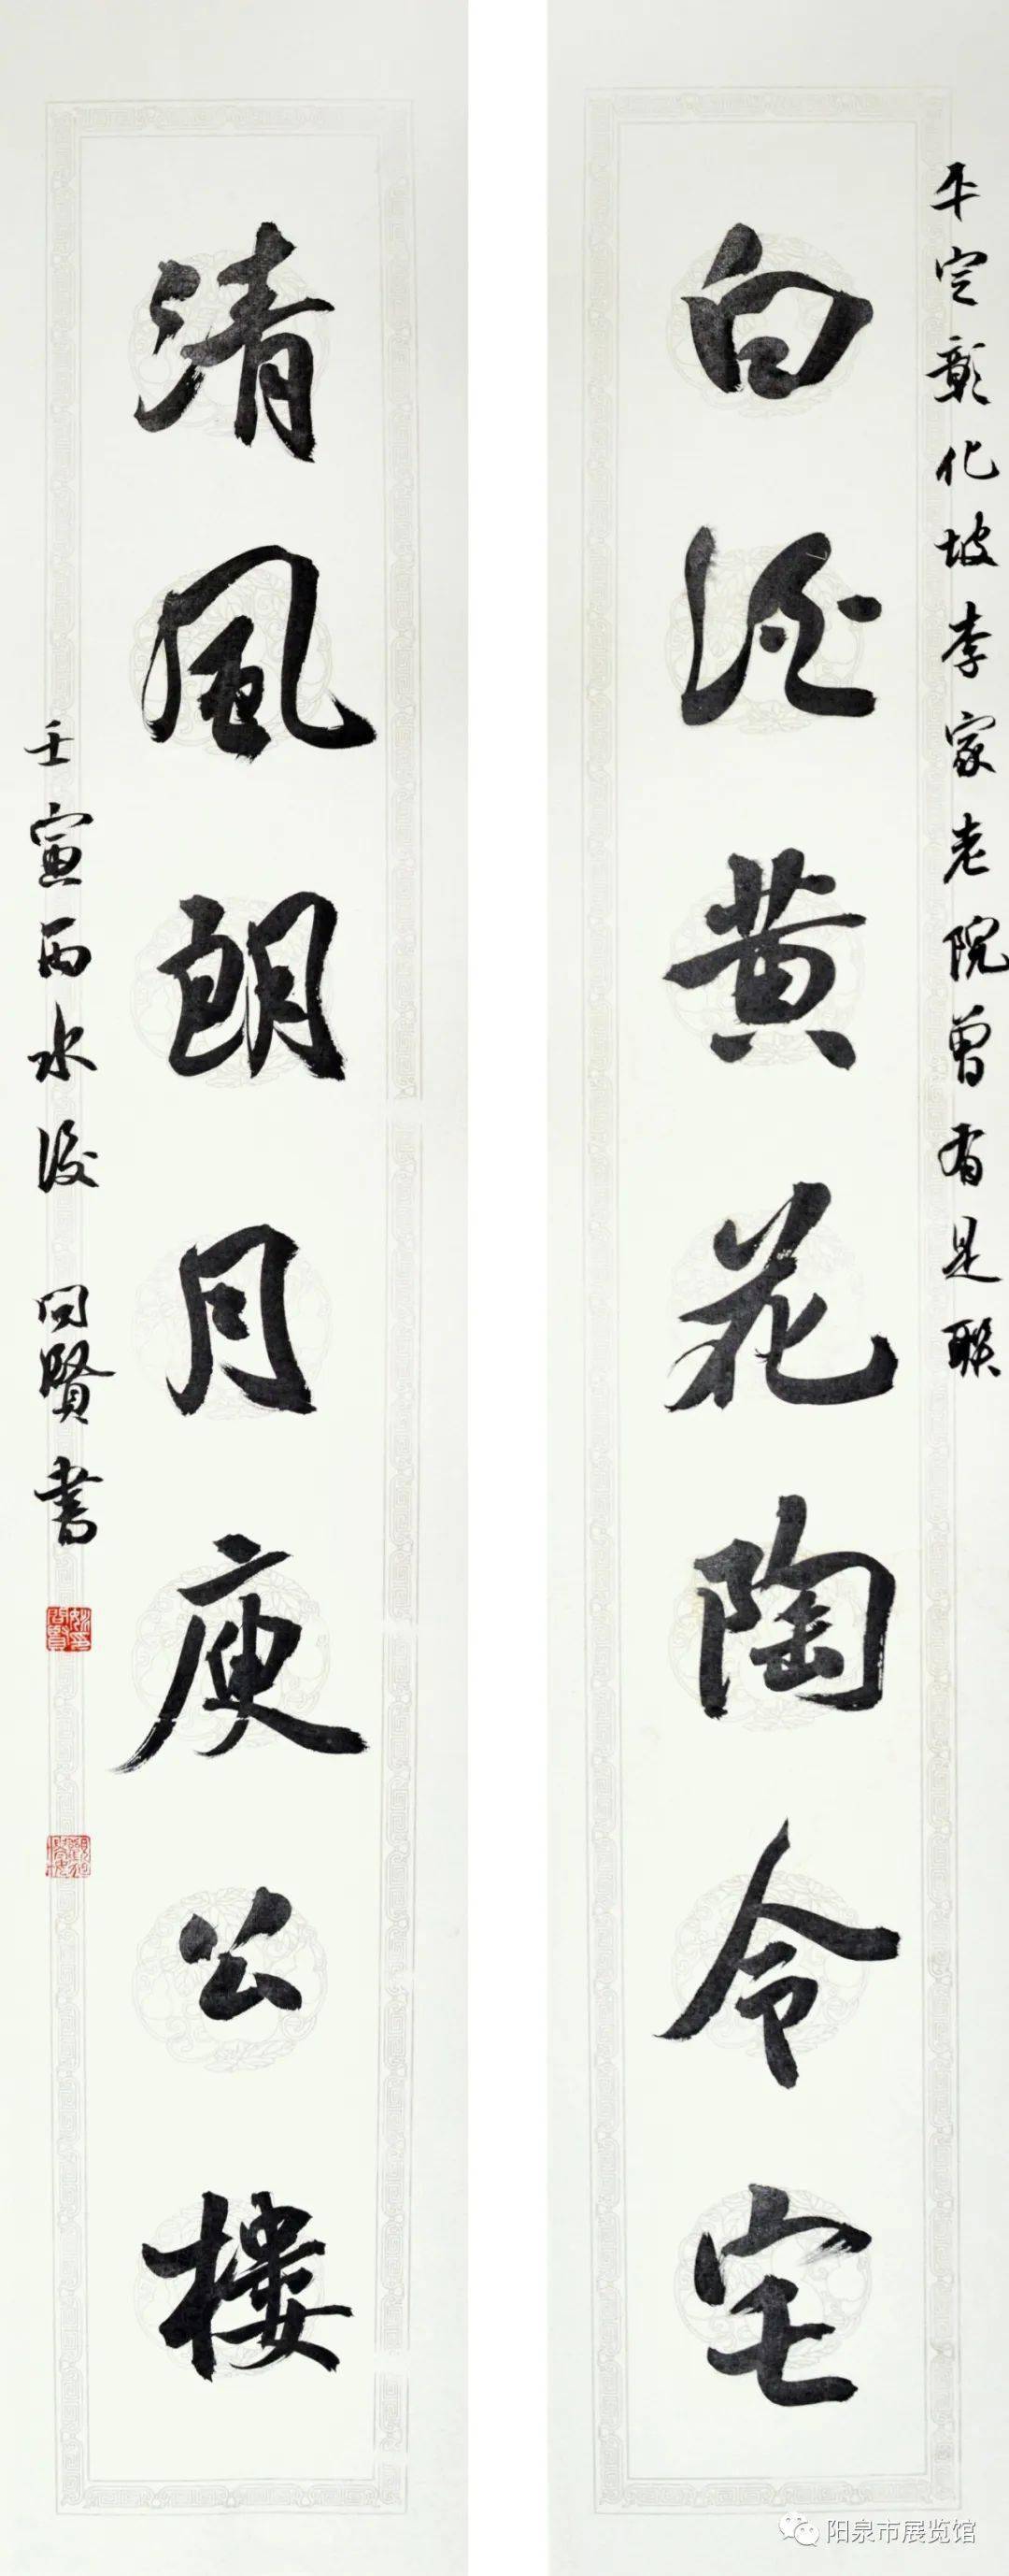 平定彰化坡李家老院曾有是联
白酒黄花陶令宅
清风朗月庾公楼
壬寅雨水后 问贤书
阳泉市展览馆